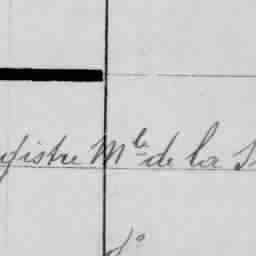 gistre Mle de la S
do